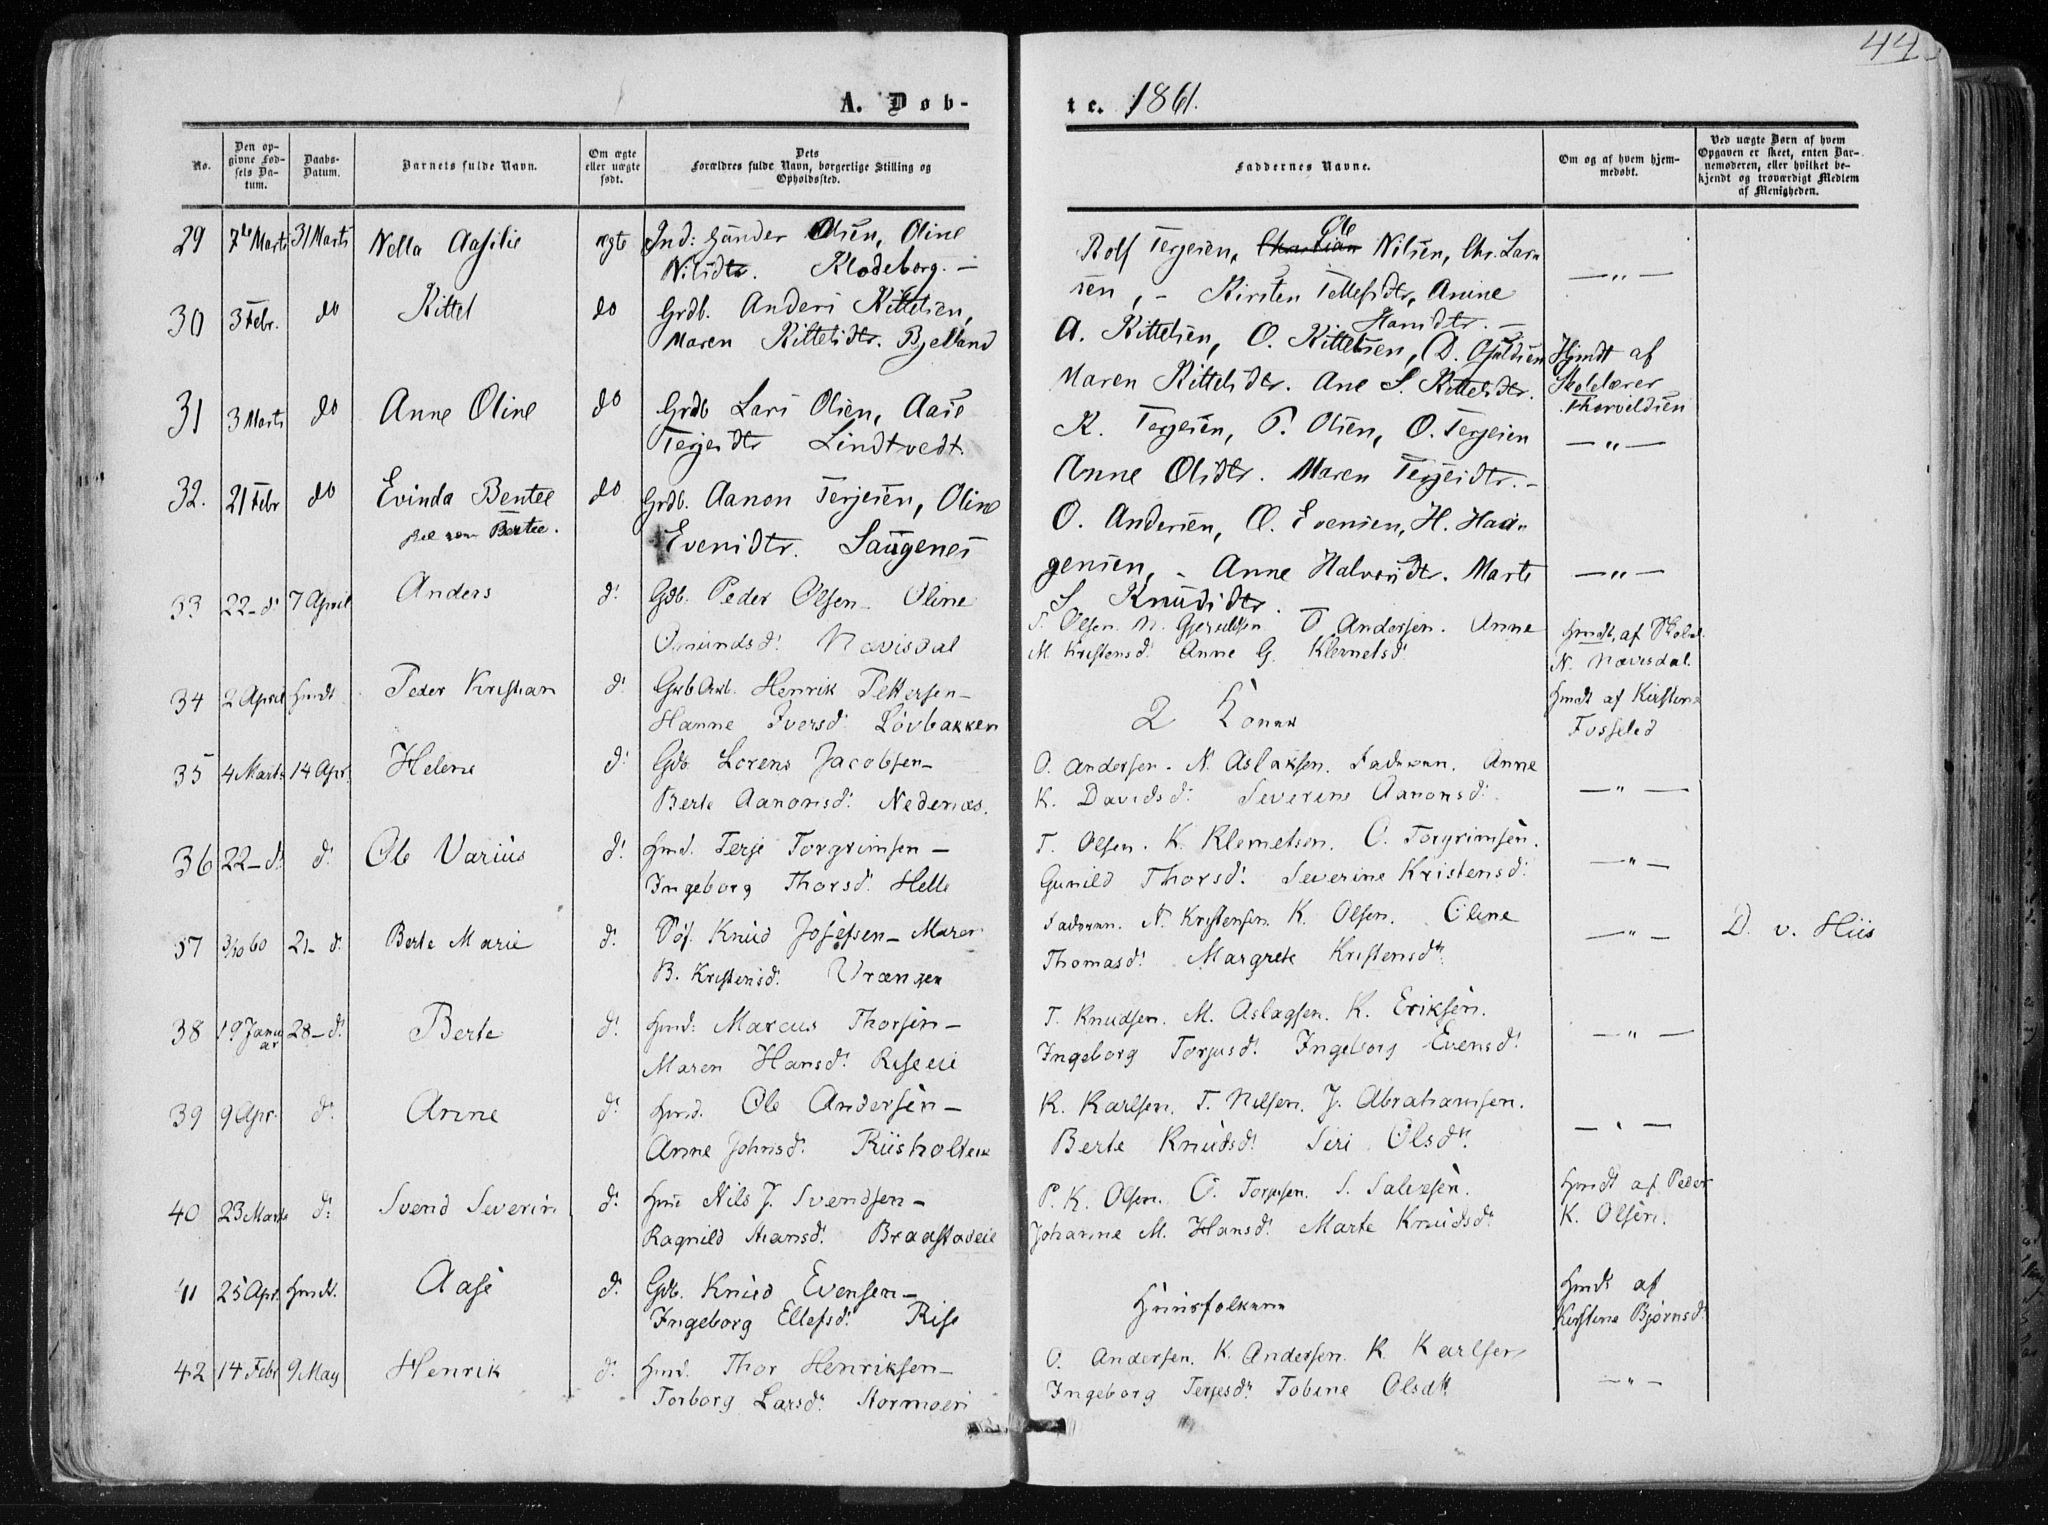 44
A. Døb-
te. 1861.
No.
Den op-
givne Fød-
sels Da-
tum.
Daabs-
Datum.
Barnets fulde Navn.
Om ægte
eller uægte
født.
Dets
Forældres fulde Navn, borgerlige Stilling og
Opholdssted.
Faddernes Navne.
Om og af hvem hjem-
medøbt.
Ved uægte Børn af hvem
Opgaven er skeet, enten Bar-
nemoderen, eller hvilket be-
kjendt og troværdigt Medlem
af Menigheden.
29 7de Marts 31 Marts Nella Aasilie ægte Ind: Gunder Olsen, Oline
Nilsdtr. Klodeborg. —
Rolf Terjesen, Christian Ole Nilsen, Chr. Lar-
sen, - Kirsten Tellefsdtr, Anine
Hansdtr. —
— „ —
30 3 Febr. do Kittel do Grdb. Anders Kittelsen,
Maren Kittelsdtr. Bjelland
A. Kittelsen, O. Kittelsen, D.
Maren Kittelsdtr. Ane S. Kittelsdtr.
Hjmdt af
Skolelærer
Thorvaldsen
31 3 Marts do Anne Oline do Grdb Lars Olsen, Aase
Terjesdtr Lindtvedt.
K. Terjesen, P. Olsen, O. Terjesen
Anne Olsdtr. Maren Terjesdtr. -
— „ —
32. 21 Febr do Evinda Bentee do Grdb. Aanon Terjesen, Oline
skal være Bertee.
Evensdtr. Saugenes
O. Andersen, O. Evensen, H. Haa-
gensen, - Anne Halvorsdtr. Marte
S. Knudsdtr.
— „ —
33 22 - d: 7 April Anders d: Gdb. Peder Olsen - Oline
Omundsd: Nævisdal
T. Olsen. N. Gjeruldsen T Andersen. Anne
M. Kristensd: Anne G. Klemetsd:
Hmdt. af Skolel.
N. Nævisdal.
34 2 April Hmdt Peder Kristian d: Henrik Pettersen -
Hanne Iversd: Løvbakken
2 Koner
Hmdt af Kirstene
Fosseled
35 4 Marts 14 Apr. Helene d: Gdb. Lorens Jacobsen -
Berte Aanonsd: Nedenæs.
O. Andersen. N. Aslaksen. Faderen. Anne
K. Davidsd: Severine Aanonsd:
— „ —
36 22 - d: d: Ole Varius d: Hmd. Terje Torgrimsen -
Ingeborg Thorsd: Helle
T. Olsen. K. Klemetsen. O. Torgrimsen.
Gunild Thorsd: Severine Kristensd:
— „ —
37 3/10 60 21 - d. Berte Marie d: Søf. Knud Josefsen - Maren
B. Kristensd: Vrængen
Faderen. N. Kristensen. K. Olsen. Oline
Thomasd: Margrete Kristensdtr.
— „ —
D. v. Hiis
38 19 Janu
ar 28 - d: Berte d: Hmd: Marcus Thorsen -
Maren Hansd: Riseeie
T. Knudsen. M. Aslagsen. K. Eriksen.
Ingeborg Torjusd: Ingeborg Evensd:
— „ —
39 9 Apr. d: Anne d: Hmd. Ole Andersen -
Anne Johnsd: Riisholten
K. Karlsen. T. Nilsen. J. Abrahamsen.
Berte Knudsd: Siri Olsdtr.
— „ —
40 23 Marts d: Svend Severin d: Hmd Nils J. Svendsen -
Ragnild Hansd: Braastadeie
P. K. Olsen. O. Torjusen. S. Salvesen.
Johanne M. Hansd: Marte Knudsd:
Hmdt af Peder
K. Olsen.
41 25 Apr. Hmdt. Aase d: Gdb. Knud Evensen -
Ingeborg Ellefsd: Rise
Huusfolkene
Hmdt af
Kirstine Bjørnsd:
42 14 Febr 9 May Henrik d: Hmd. Thor Henriksen -
Torborg Larsd: Stormoen
O. Andersen. K. Andersen. K Karlsen
Ingeborg Terjesd: Tobine Olsdtr
— „ —